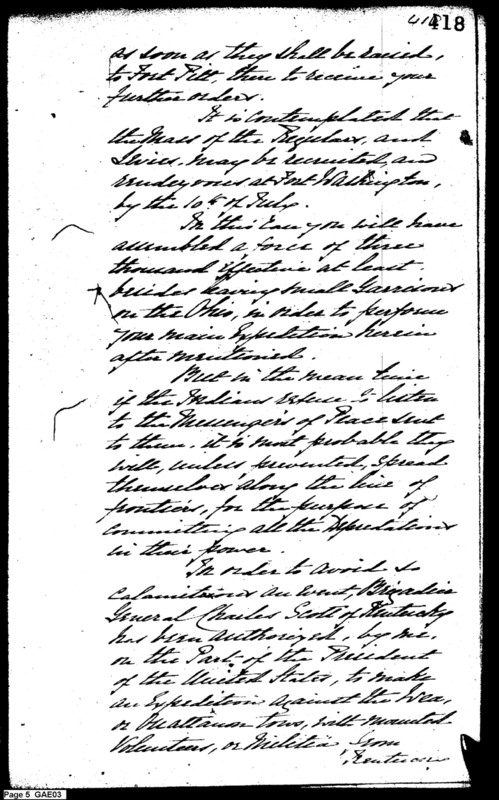 418
418
as soon as they shall be raised,
to Fort Pitt, there to receive your
further orders.
It is contemplated that
the Mass of the Regulars, and
Levies, may be recruited, and
rendezvous at Fort Washington,
by the 10th of July.
In this Case you will have
assembled a force of three
thousand effective at least
besides leaving small Garrisons
on the Ohio, in order to perform
your main Expedition herein
after mentioned.
But in the mean time
if the Indians refuse to listen
to the Messengers of Peace sent
to them, it is most probable they
will, unless prevented, spread
themselves along the line of
frontiers, for the purpose of
committing all the Depredations
in their power.
In order to avoid so
calamitous an event, Brigadier
General Charles Scott of Kentucky
has been authorized, by me,
on the Part of the President
of the United States, to make
an Expedition against the Wea,
or Ouattanon town, with mounted
Volunteers, or Militia from
Page 5 GAE03